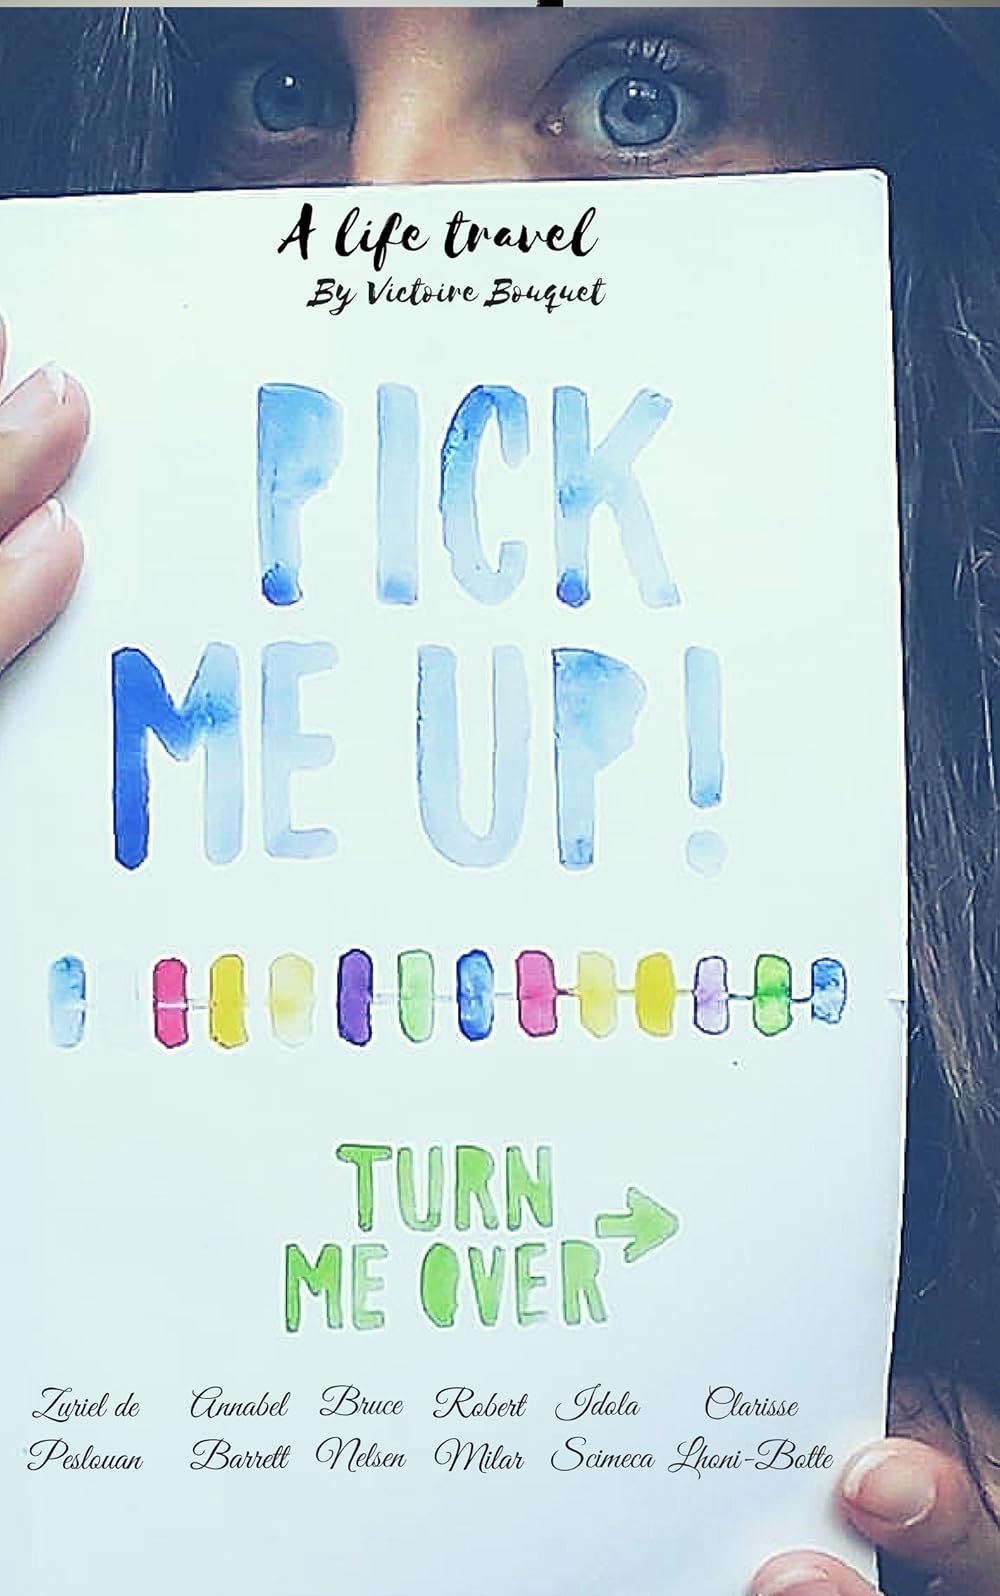 A life travel
By Victoire Bouquet
PICK
ME UP!
TURN
ME OVER
Zuriel de Annabel Bruce Robert Idola Clarisse
Peslouan Barrett Nelsen Milar Scimeca Lhoni-Botte